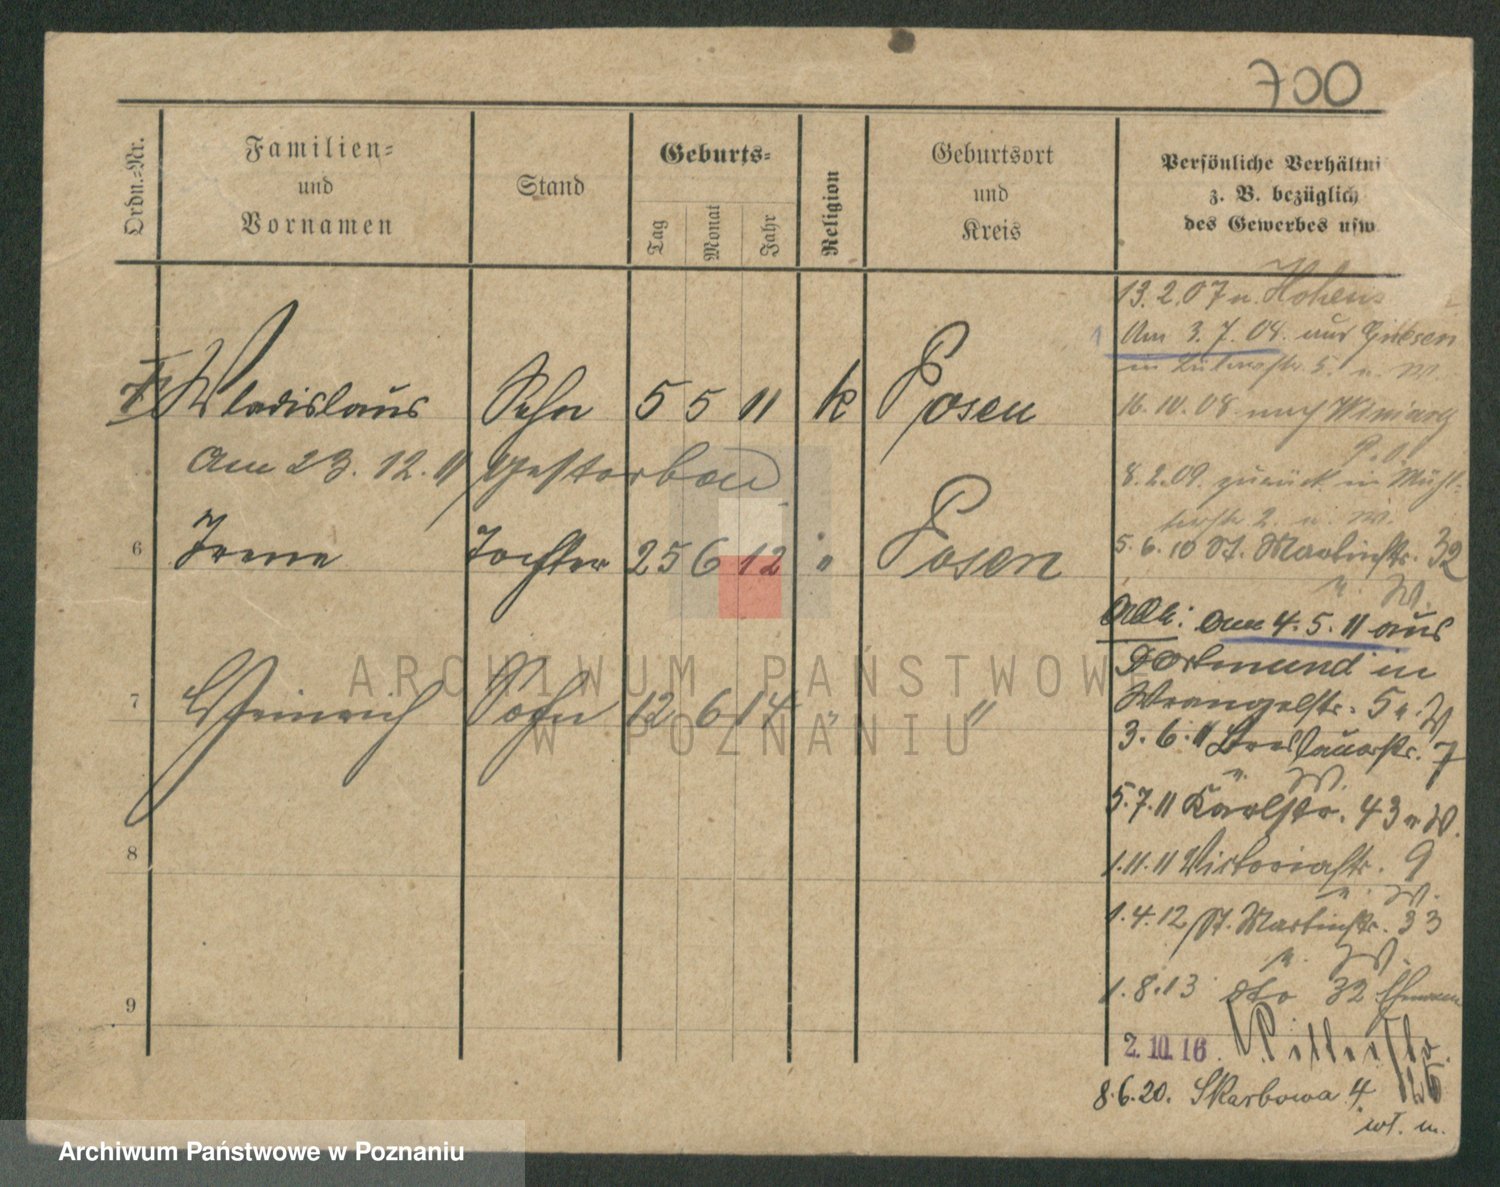 700
Ordn.-Nr.
Familien-
und
Vornamen
Stand
Geburts-
Tag
Monat
Jahr
Religion
Geburtsort
und
Kreis
Persönliche Verhältni
z. B. bezüglich
des Gewerbes usw
13. 2. 07 n. Hohens
Am 3. 7. 04. aus Gnesen
5. u. W.
16. 10. 08 nach Winiary
P. O.
8. 2. 09. zurück in Mühl-
lenstr. 2 u. W.
5. 6. 10 St. Martinstr. 32
u. W.
Wladislaus Sohn 5 5 11 k Posen
Am 23. 12. 11 gestorben
6 Irene Tochter 25 6 12 " Posen
7 Heinrich Sohn 12 6 14 " "
8
9
Am 4. 5. 11 aus
Dortmund in
Wrangelstr. 5 u. W
3. 6. 11 Breslauerstr. 7
u. W.
5. 7. 11 Karlstr. 43 u. W.
1. 11. 11 Victoriastr. 9
u. W.
1. 4. 12 St. Martinstr. 33
u. W.
1. 8. 13 dto 32 Ehemann
2. 10. 16. Ritterstr.
8. 6. 20. Skarbowa 4
wł. m.
ARCHIWUM PAŃSTWOW
W POZNANIU
Archiwum Państwowe w Poznaniu